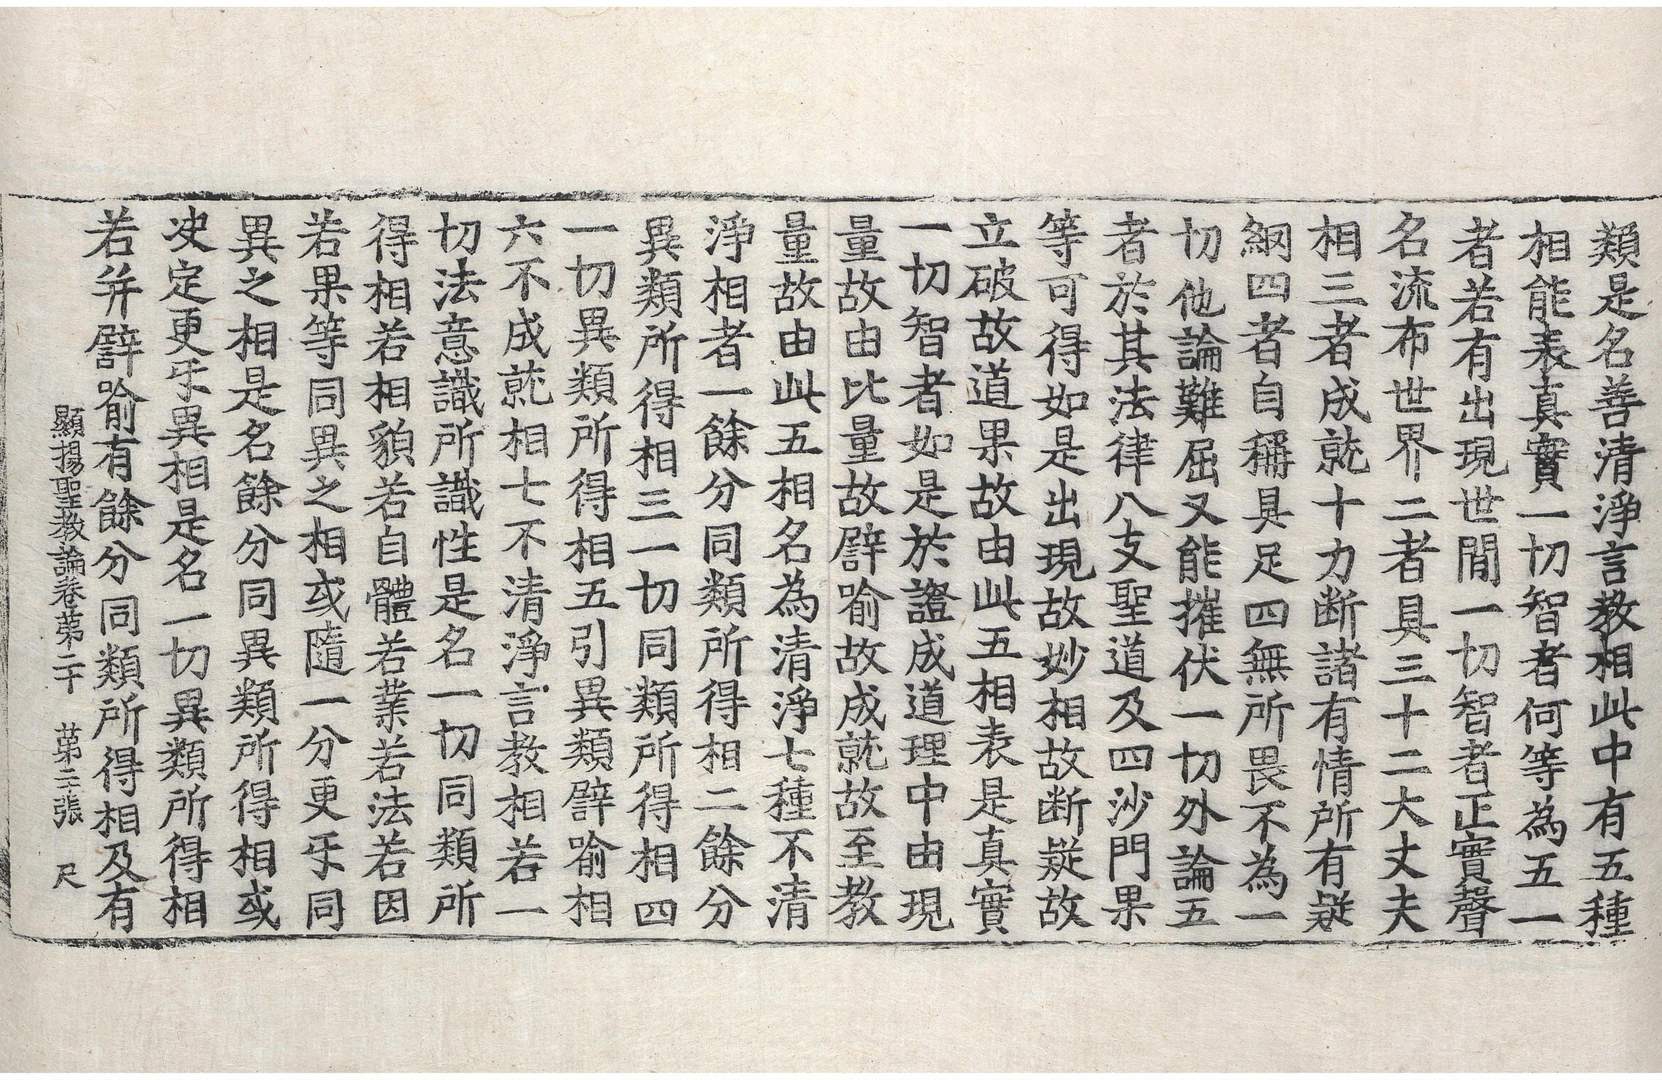 類是名善清淨言教相此中有五種
相能表真實一切智者何等為五一
者若有出現世閒一切智者正實聲
名流布世界二者具三十二大丈夫
相三者成就十力断諸有情所有疑
網四者自稱具足四無所畏不為一
切他論難屈又能摧伏一切外論五
者於其法律八支聖道及四沙門果
等可得如是出現故妙相故断疑故
立破故道果故由此五相表是真實
一切智者如是於證成道理中由現
量故由比量故譬喻故成就故至教
量故由此五相名為清淨七種不清
淨相者一餘分同類所得相二餘分
異類所得相三一切同類所得相四
一切異類所得相五引異類譬喻相
六不成就相七不清淨言教相若一
切法意識所識性是名一切同類所
得相若相貌若自體若業若法若因
若果等同異之相或隨一分更互同
異之相是名餘分同異類所得相或
决定更互異相是名一切異類所得相
若并譬喻有餘分同類所得相及有
顯揚聖教論卷第二十　第二張　尺